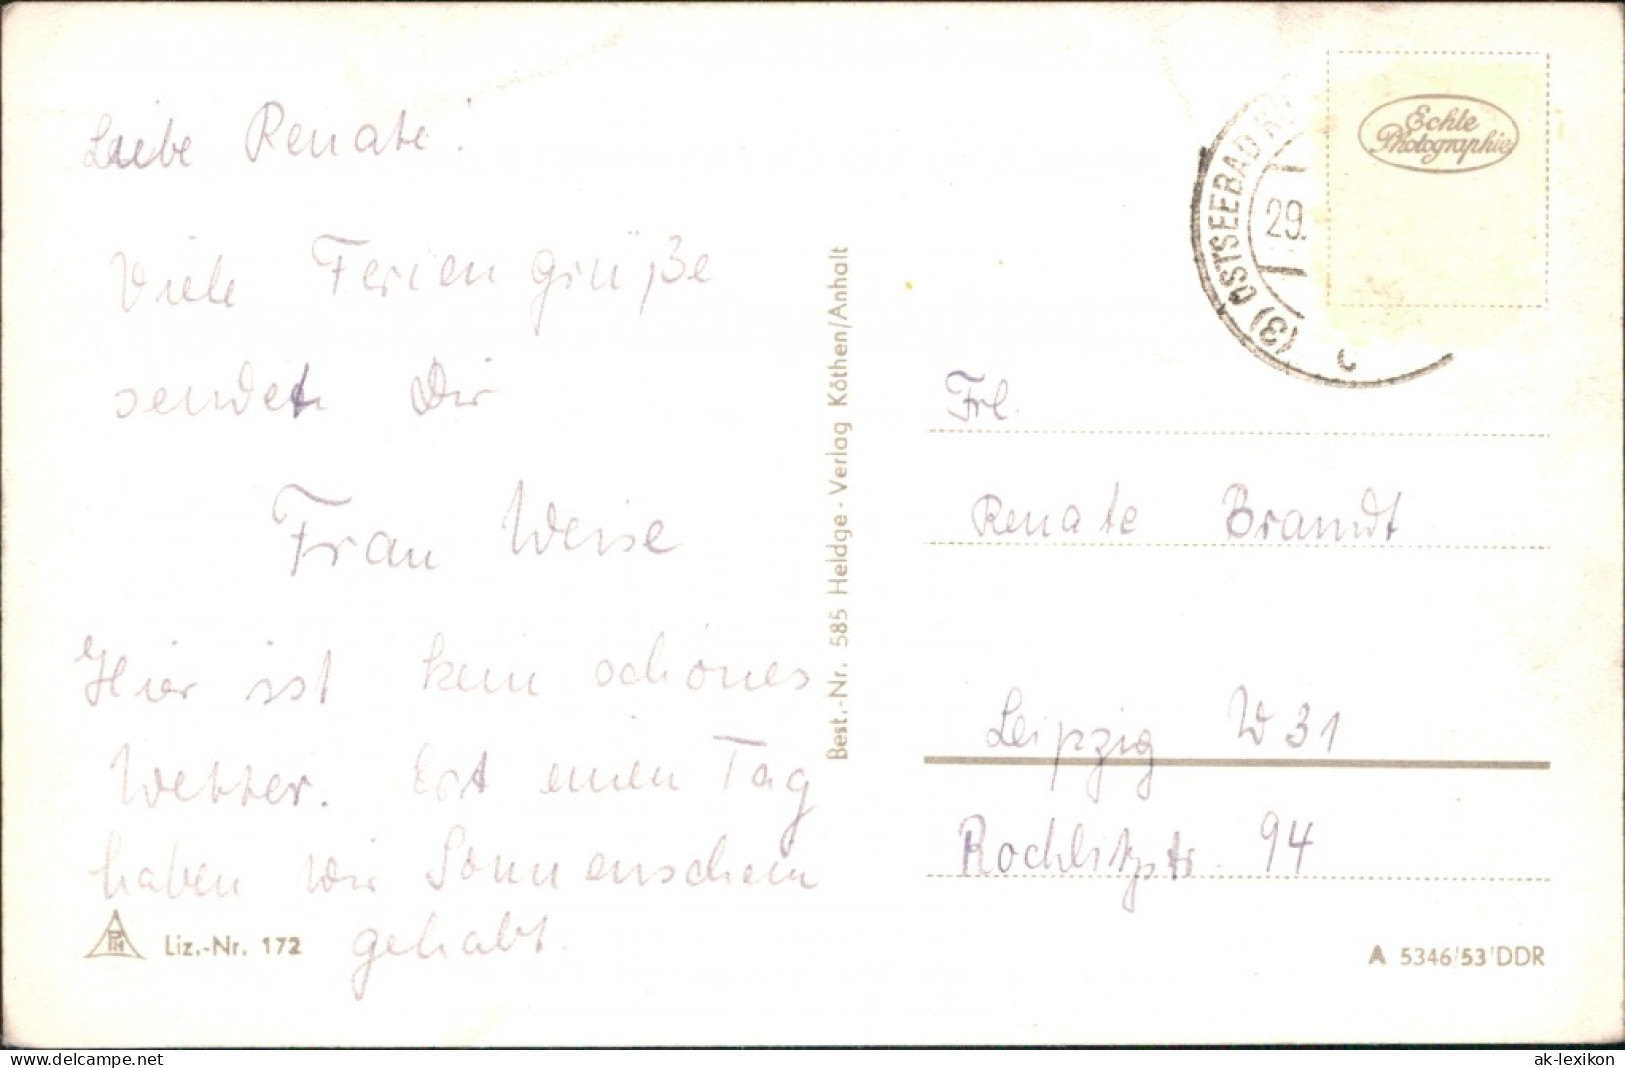 Liebe Renate!
Viele Feriengrüße
sendet Dir
Frau Weise
Hier ist kein schönes
Wetter. Erst einen Tag
haben wir Sonnenschein
gehabt.
Liz.-Nr. 172
Best.-Nr. 585 Heldge-Verlag Köthen/Anhalt
(3) OSTSEEBAD
29.
Echte
Photographie
Frl.
Renate Brandt
Leipzig W 31
Rochlitzstr. 94
A 5346/53/DDR
delcampe.net
ak-lexikon